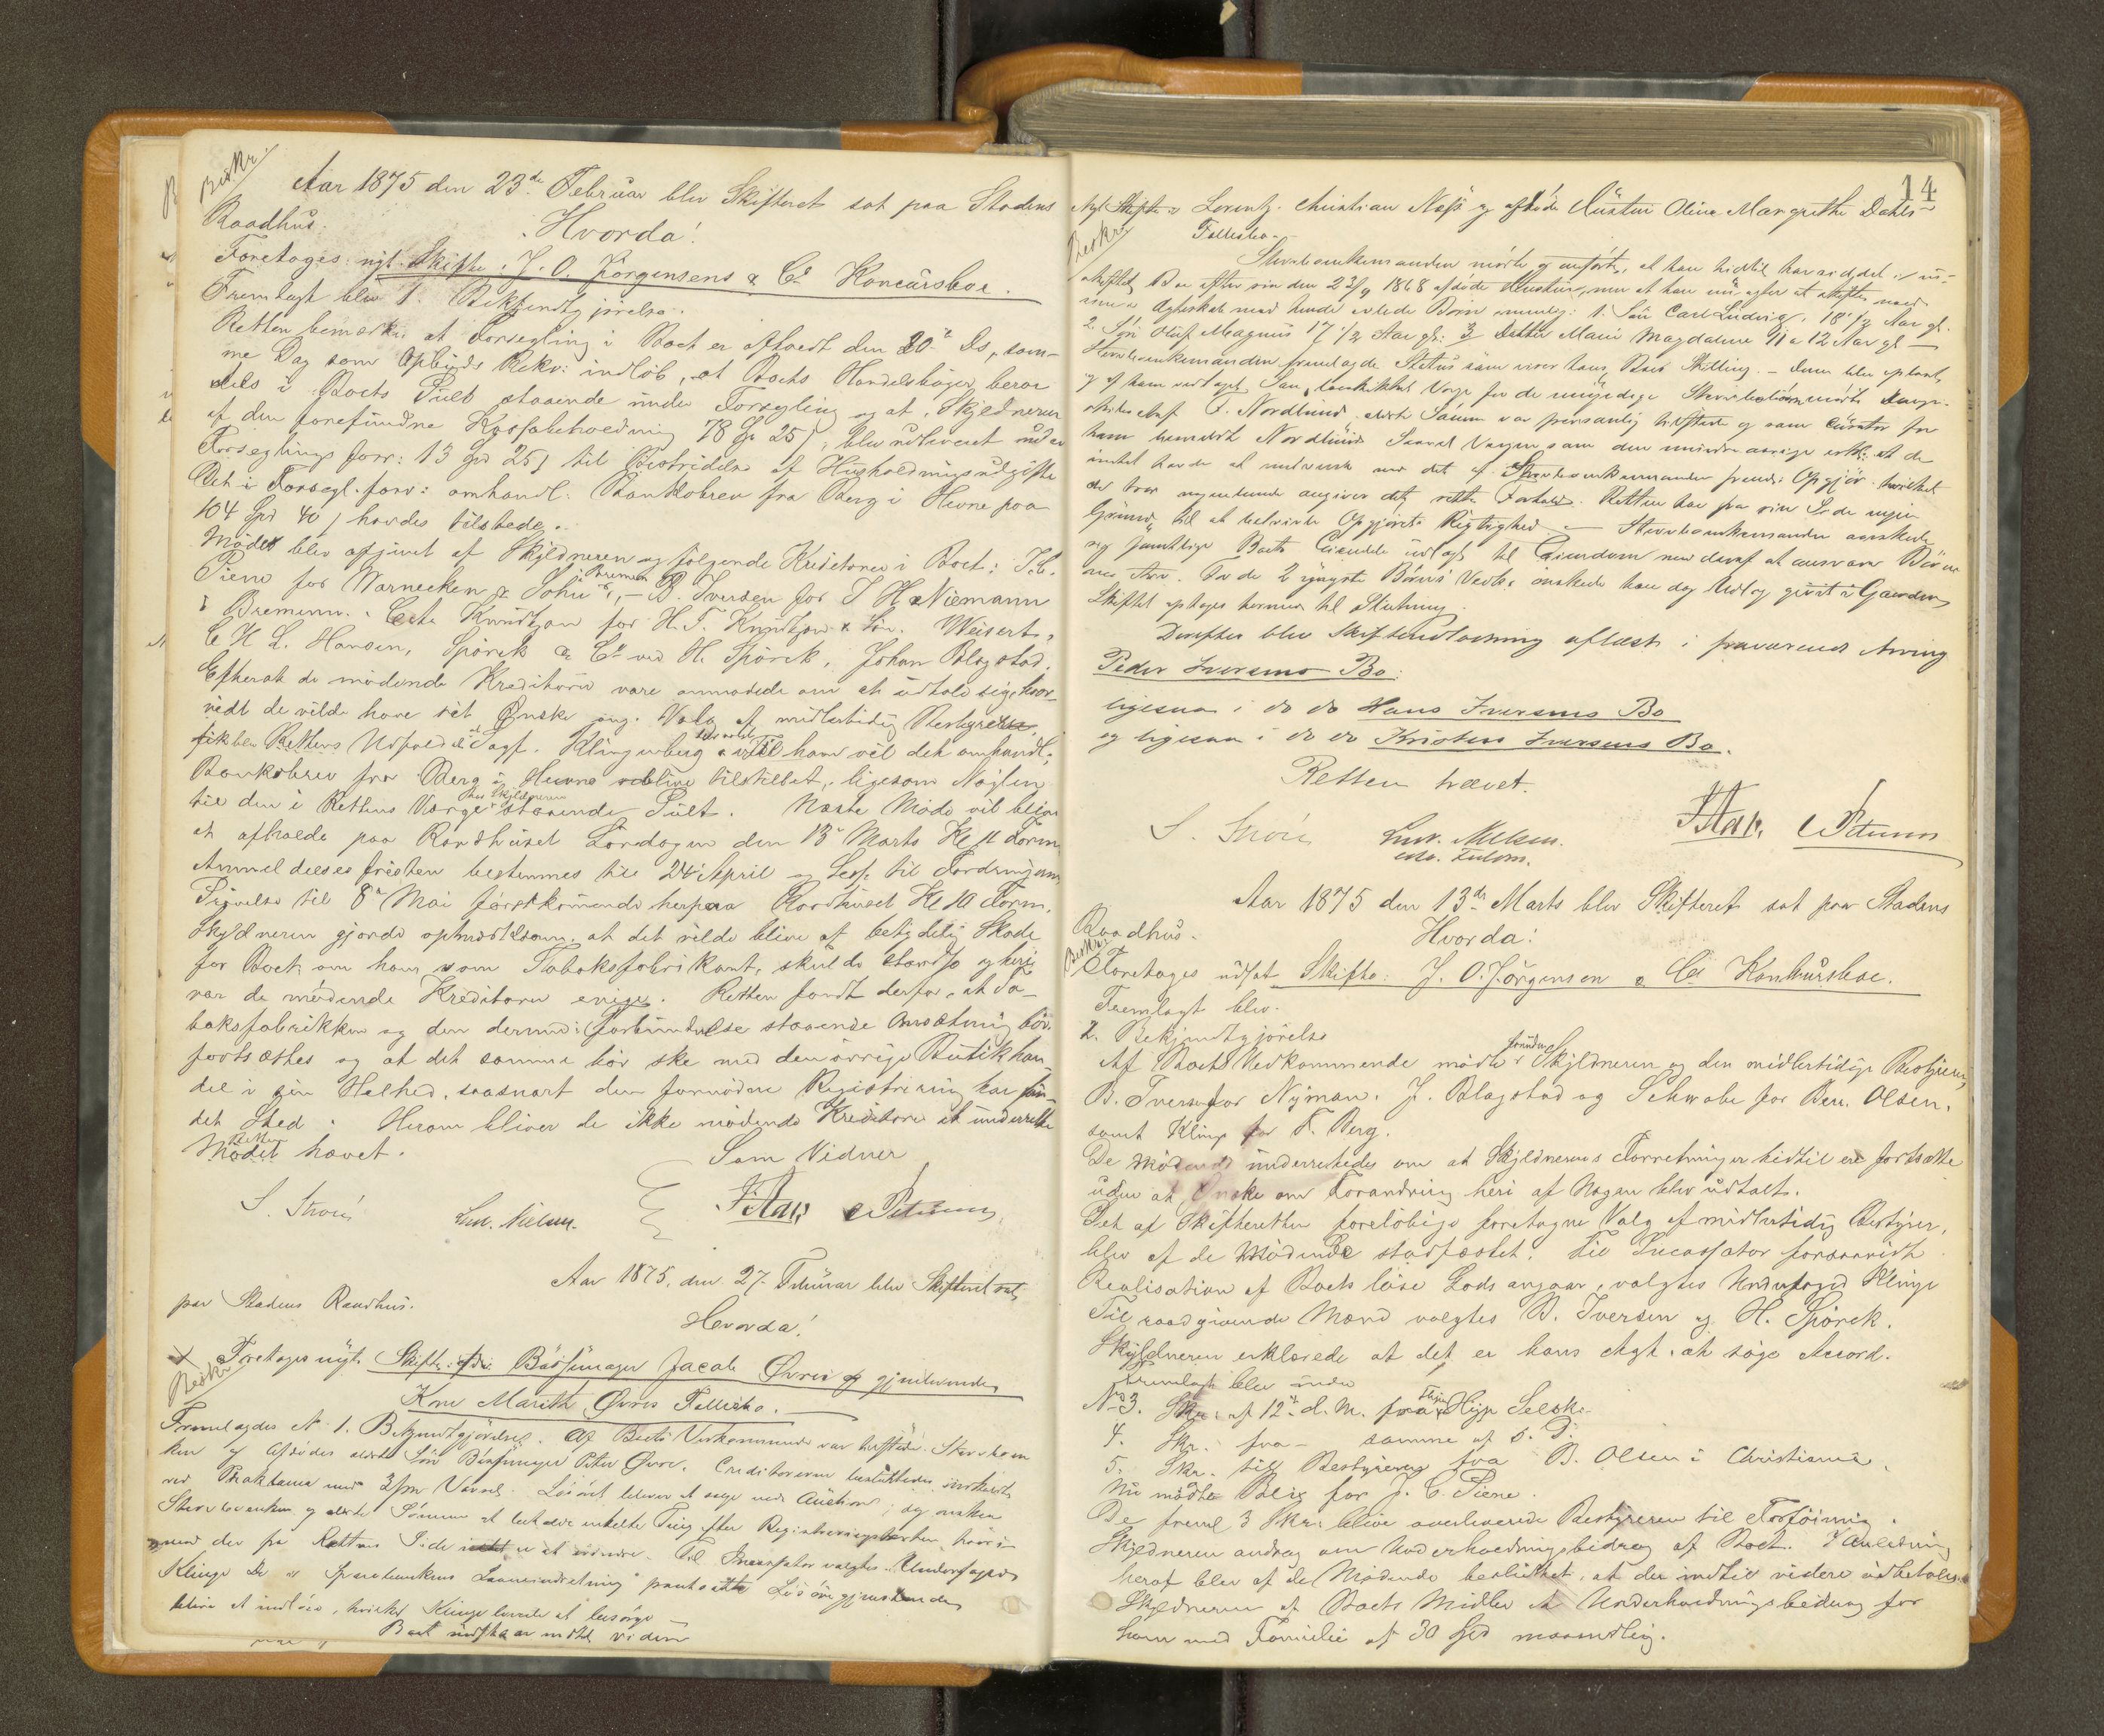 Beskr.
Aar 1875 den 23de Februar blev Skifteret sat paa Stadens
Raadhus.
Hvorda!
Foretages nyt Skifte: J. O. Jørgensens & Co Koncursboe.
Fremlagt blev 1. Bekjendtgjørelse.
Retten bemærker at Forsegling i Boet er afholdt den 20de ds, sam-
me Dag som Opbuds Rekv: indløb, at Boets Handelsbøger beroe
dels i Boets Pult staaende under Forsegling og at Skyldneren
af den forefundne Kassabeholdning 78 Spd 25 s, blev udleveret under
Forseglings forr: 13 Spd 25 s til Bestridelse af Husholdningsudgifter
Det i Forsegl. forr: omhandl: Bankobrev fra Berg i Hevne paa
104 Spd 40 s havdes tilstede.
Mødet blev afgivet af Skyldneren og følgende Kreditorer i Boet: J. C.
Piene for Warnecken & Sohn Bremen, – B. Iversen for J H Niemann
i Bremen. Knudtzon for H. F. Knudtzon & Søn. Weisert,
C H L. Hansen, Spørck & Co ved H. Spørck, Johan Blogstad.
Efterat de mødende Kreditorer vare anmodede om at udtale sig, hvor-
vidt de vilde have sit Ønske ang. Valg af midlertidig Bestyrelse
blev Rettens Klingenberg ham vil det omhandl:
Bankobrev fra Berg i Hevne blive tilstillet, ligesom Nøglen
til den i Rettens Værge hos Skyldneren staaende Pult. Næste Møde vil blive
at afholde paa Raadhuset Lørdagen den 13de Marts Kl 11 Form.
Anmeldelsesfristen bestemmes til 24de April og Sess. til Fordringernes
Prøvelse til 8de Mai førstkommende herpaa Raadhuset Kl 10 Form.
Skyldneren gjorde opmærksom, at det vilde blive af betydelig Skade
for Boet, om han som Tobaksfabrikant, skulde standse og heri
var de mødende Kreditorer enige. Retten fandt derfor, at To-
baksfabrikken og den dermed i Forbindelse staaende Omsætning bør
fortsættes og at det samme bør ske med den øvrige Butikhan-
del i sin Helhed, saasnart den fornødne Registrering har fun-
det Sted. Herom bliver de ikke mødende Kreditorer at underrette
Mødet Retten hævet.
Som Vidner
S. Strøm
Lud. Nielsen.
Aar 1875, den 27. Februar blev Skifteret sat
paa Stadens Raadhus.
Hvorda!
Beskr.
Foretages nyt Skifte: afdøde Bøssemager Jacob Øvres og gjenlevende
Kone Marith Øvres Fællesbo.
Fremlagdes No 1. Bekjendtgjørelse. Af Boets Vedkommende var tilstede Stervboen
ken og Afdødes ældste Søn Bøssemager Peter Øvre. Creditorerne besluttedes indkaldt
ved Proklama med 3 m Varsel. Løsøret bliver at sælge ved Auction; dog ønsker
Stervboenken og ældste Sønnen at beholde enkelte Ting efter Registreringstaxten, hvori-
mod der fra Rettens Side intet er at erindre. Til Incassator valgtes Underfoged
Klinge De i Sparebankens Laaneindretning pantsatte Løsøregjenstande
blive at indløse, hvilket Klinge lovede at besørge –
Boet udsættes indtil videre
14
Nyt Skifte i Lorentz Christian Næss og afdøde Hustru Oline Margrethe Dahls
Fællesbo.
Beskr.
Stervboenkemanden mødte og anførte, at han hidtil har siddet i u-
skiftet Bo efter sin den 23/9 1868 afdøde Hustru, men at han nu agter at skifte med
sine i Ægteskab med hende avlede Børn nemlig: 1. Søn Carl Ludvig, 18 1/2 Aar gl.
2. Søn Oluf Magnus 17 1/2 Aar gl: 3 Datter Marie Magdalene 11 a 12 Aar gl –
Stervboenkemanden fremlagde Status som viser hans Boes Stilling. – Denne blev oplæst
og af ham vedtaget. Som beskikket Værge for de umyndige Stervboebørn mødte
F. Nordlund. ældste Sønnen var personlig tilstede og som Curator for
ham benævnt Nordlund. Saavel Værgen som den mindreaarige erkl. at de
intet havde at indvende mod det af Stervboenkemanden fremk. Opgjør, hvilket
de tror angiver det rette Forhold. Retten har fra sin Side ingen
Grund til at betvivle Opgjørets Rigtighed – Stervboenkemanden ønskede
sig samtlige Boets Eiendele udlagt til Eiendom mod deraf at ansvare Børne-
nes Arv. For de 2 yngste Børns Vedk. ønskede han dog Udlæg givet i Gaarden
Skiftet optages hermed til Slutning.
Derefter blev Skifteudlodning aflæst i fraværende Arving
Peder Iversens Bo.
ligesaa i do do Hans Iversens Bo
og ligesaa i do do Kristen Iversens Bo.
Retten hævet.
S. Strøm
Lud. Nielsen.
Aar 1875 den 13de Marts blev Skifteret sat paa Stadens
Raadhus.
Hvorda!
Beskr.
Foretages udsat Skifte: J. O. Jørgensen & Co Konkursboe.
Fremlagt blev.
2. Bekjendtgjørelse
Af Boets Vedkommende mødte foruden Skyldneren og den midlertidige Bestyrer,
B. Iversen for Nyman. J. Blogstad og Schwabe for Ber. Olsen,
samt Klinge for F. Berg.
De Mødende underrettedes om at Skyldnerens Forretninger hidtil ere fortsatte
uden at Ønske om Forandring heri af Nogen blev udtalt.
Det af Skifteretten foreløbige foretagne Valg af midlertidig Bestyrer,
blev af de Mødende stadfæstet. Til Incassator forsaavidt
Realisation af Boets løse Gods angaar, valgtes Underfoged Klinge
Til raadgivende Mænd valgtes B. Iversen og H. Spørck.
Skyldneren erklærede at det er hans Agt at søge Accord.
Fremlagt blev endv.
No 3. Skr. af 12te d. M. fra Thjem Hyp Selsk.
4. Skr. fra – samme af s. D.
5. Skr. till Bestyreren fra B. Olsen i Christiania.
Nu mødte Blix for J. C. Piene.
De freml 3 Skr. blive overleverede Bestyreren til Forføining.
Skyldneren androg om Underholdningsbidrag af Boet. I Anledning
heraf blev af de Mødende besluttet, at der indtil videre udbetales
Skyldneren af Boets Midler et Underholdningsbidrag for
ham med Familie af 30 Spd maanedlig.